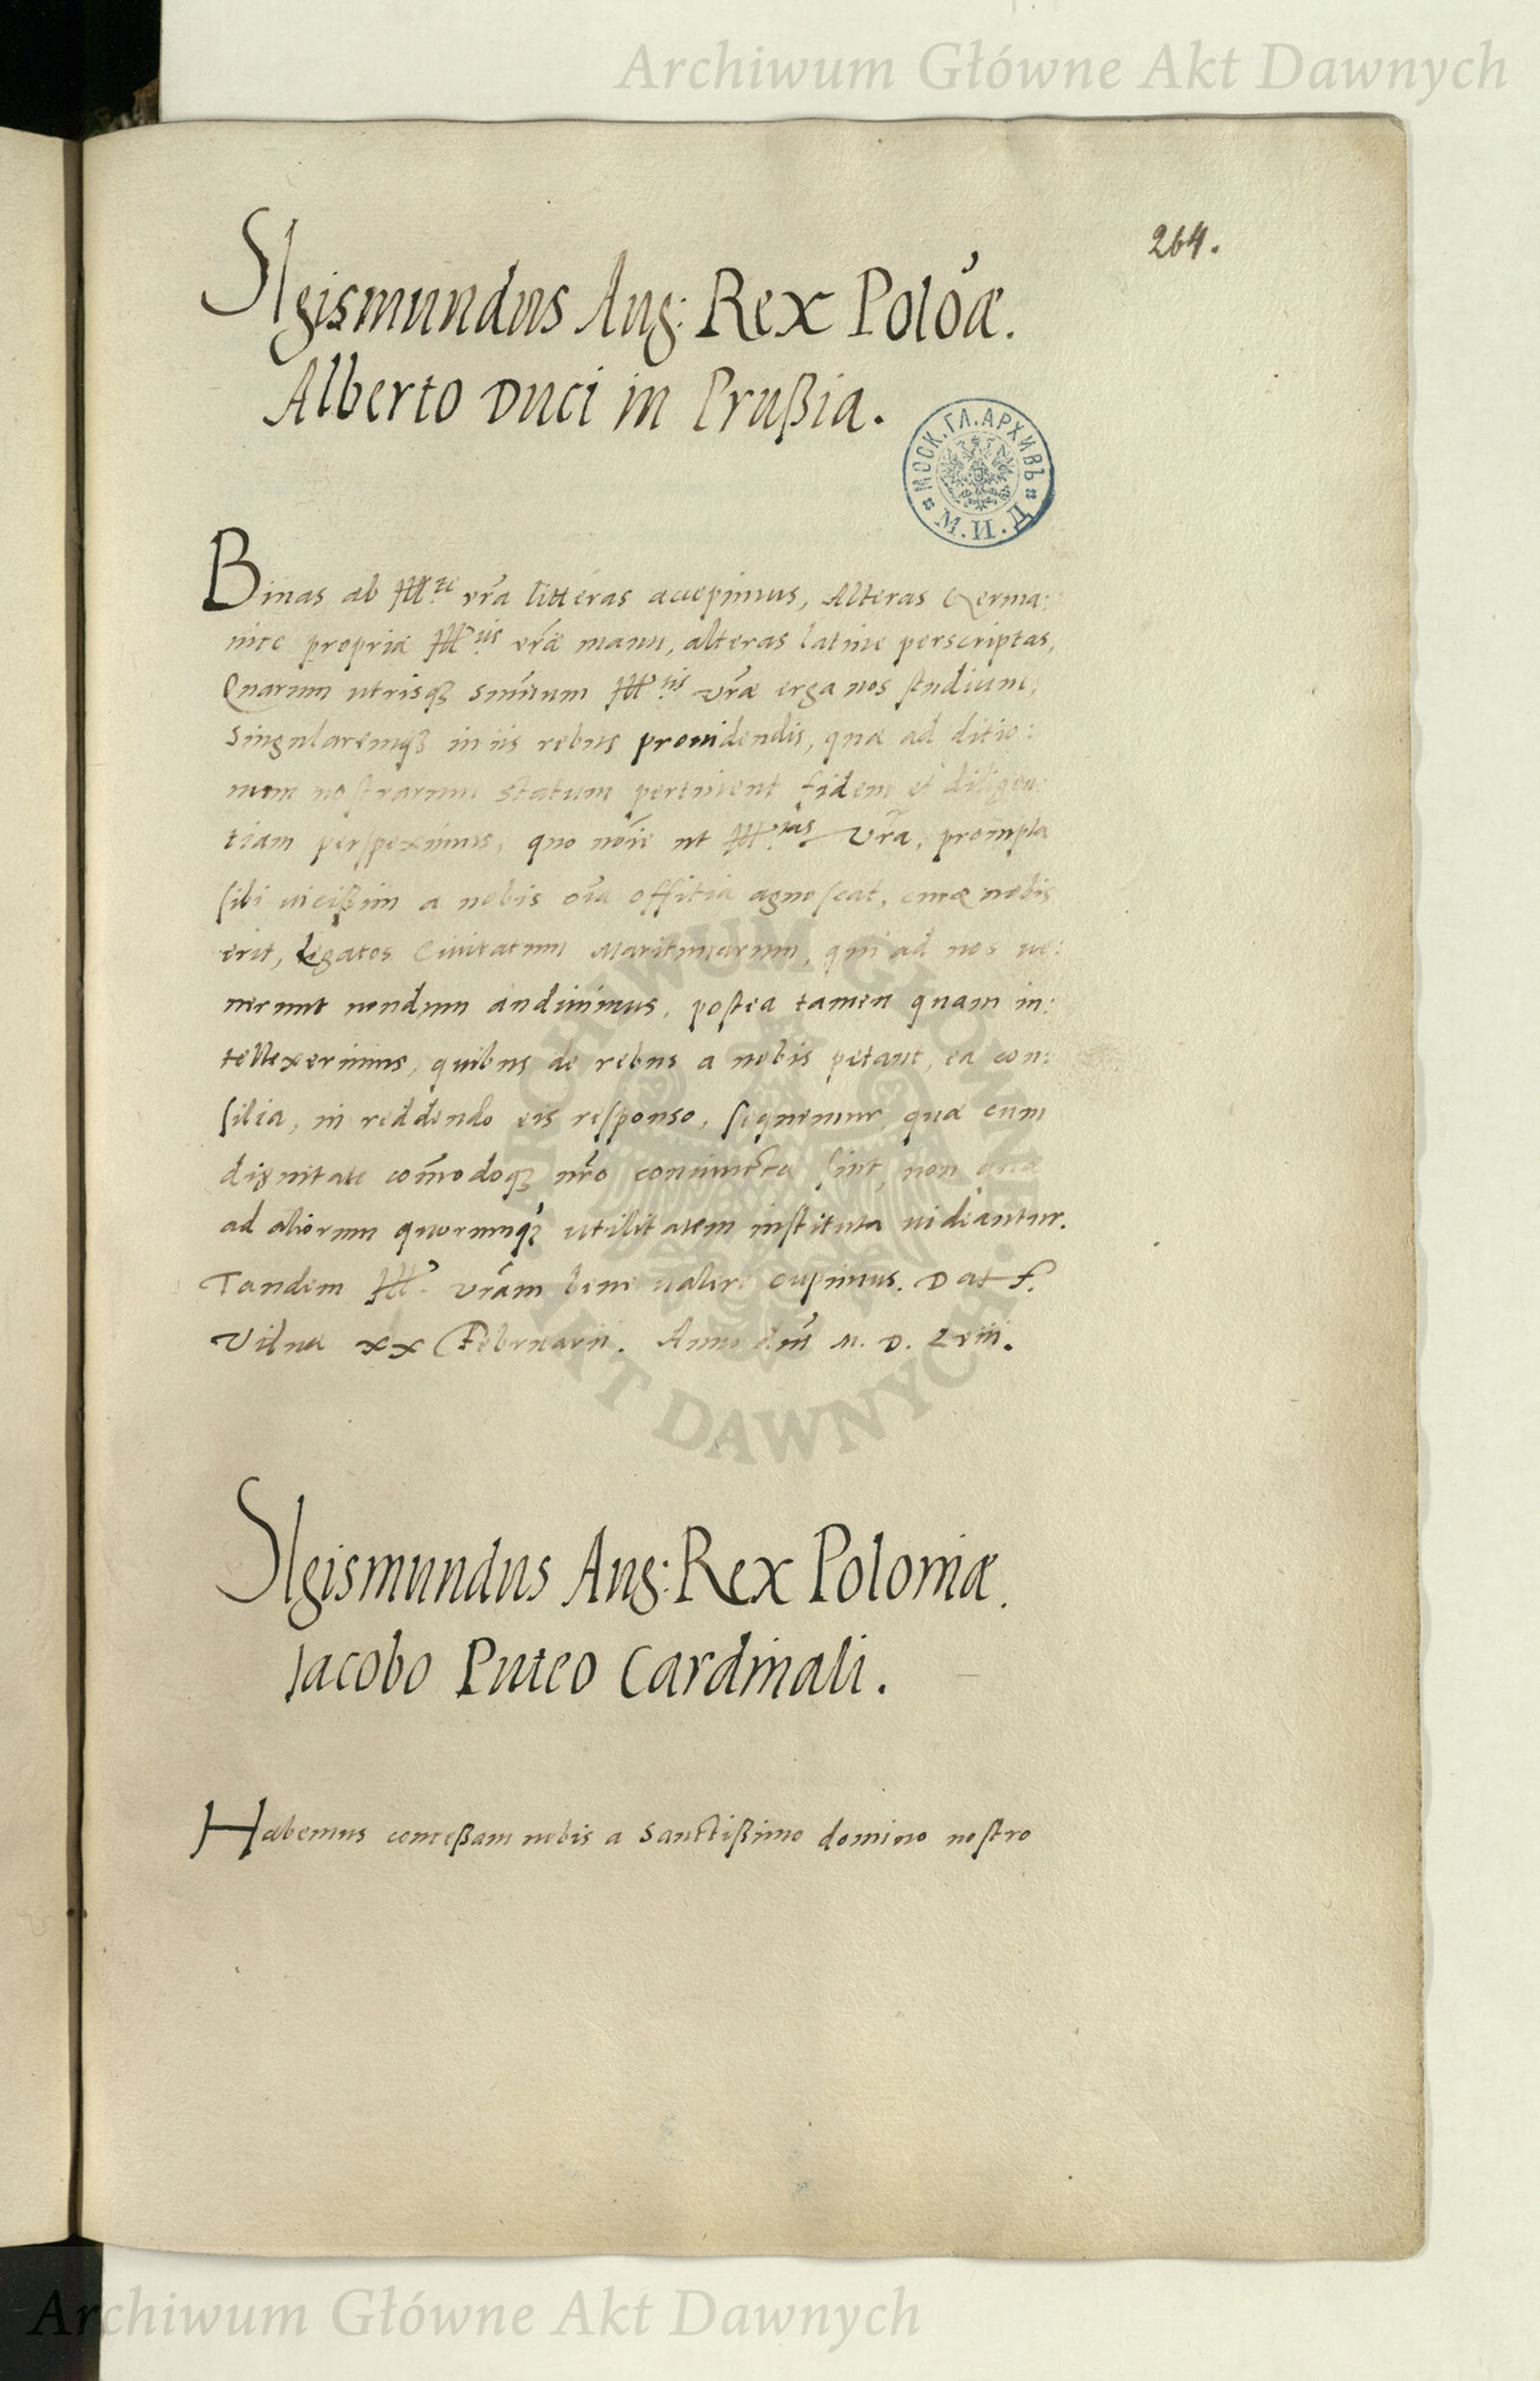 Archiwum Główne Akt Dawnych
264.
SIgismundus Aug: Rex Poloæ.
Alberto Duci in Prußia.
МОСК. ГЛ. АРХИВЪ М. И. Д.
Binas ab Ill.te vra litteras accepimus, Alteras Germa:
nice propria Ill.tis vræ manu, alteras latine perscriptas,
Quarum utrisq3 summum Ill.tis vræ erga nos studium,
singularemq3 in iis rebus prouidendis, quæ ad ditio:
num nostrarum statum pertinent fidem et diligen:
tiam perspeximus, quo noie ut Ill.tas vra, prompta
sibi uicißim a nobis oia offitia agnoscat, curæ nobis
erit, Legatos Ciuitatum Maritimarum, qui ad nos ue:
nerunt nondum audiuimus, postea tamen quam in:
tellexerimus, quibus de rebus a nobis petant, ea con:
silia, in reddendo eis responso, sequemur, quæ cum
dignitate comodoq3 nro coniuncta sint, non quæ
ad aliorum quorumq3 utilitatem instituta uideantur.
Tandem Ill. vram bene ualere cupimus. Dat f.
Vilnæ xx Februarii. Anno dni M. D. Lviii.
SIgismundus Aug: Rex Poloniæ.
Iacobo Puteo Cardinali.
Habemus conceßam nobis a Sanctißimo domino nostro
ARCHIWUM GŁÓWNE AKT DAWNYCH
Archiwum Główne Akt Dawnych